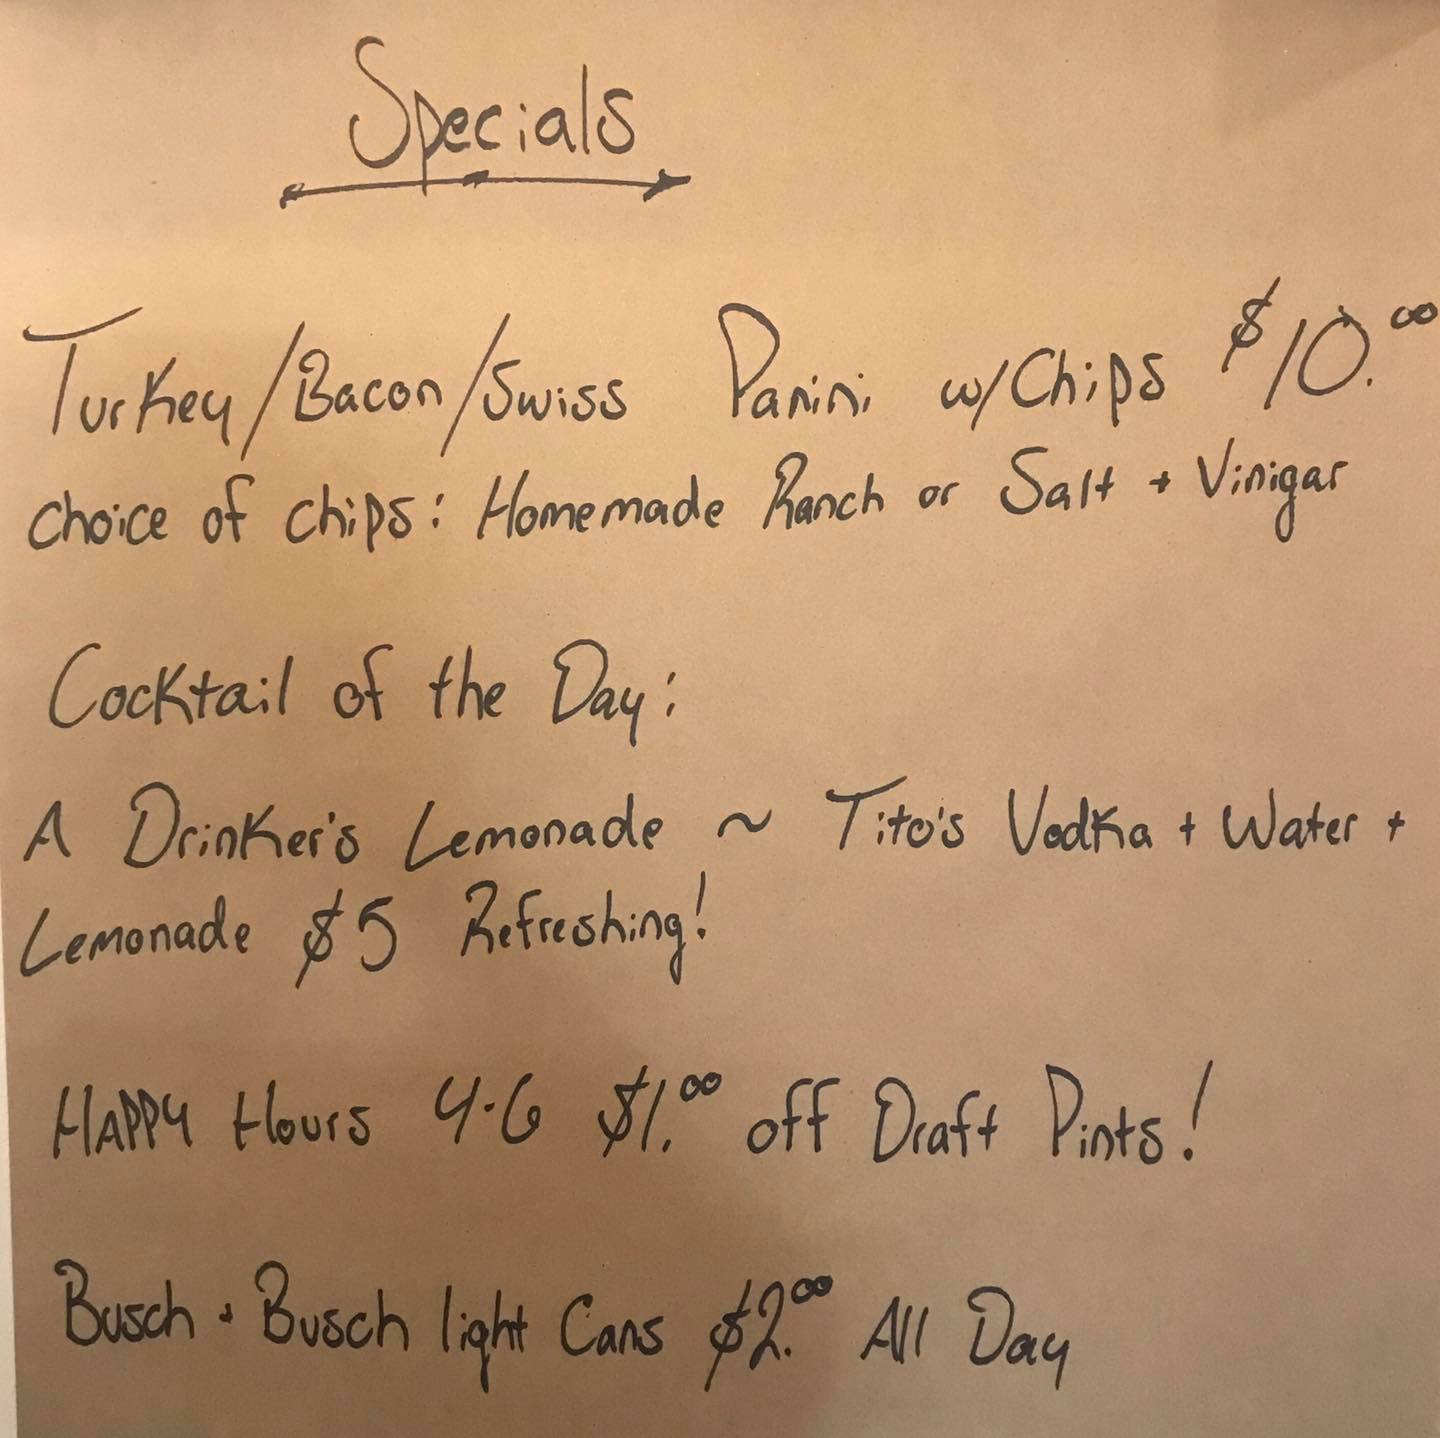 Specials
Turkey/Bacon/Swiss Panini w/Chips $10.00
choice of chips: Homemade Ranch or Salt + Vinigar
Cocktail of the Day:
A Drinker's Lemonade ~ Tito's Vodka + Water +
Lemonade $5 Refreshing!
HAPPY Hours 4-6 $1.00 off Draft Pints!
Busch + Busch light Cans $2.00 All Day